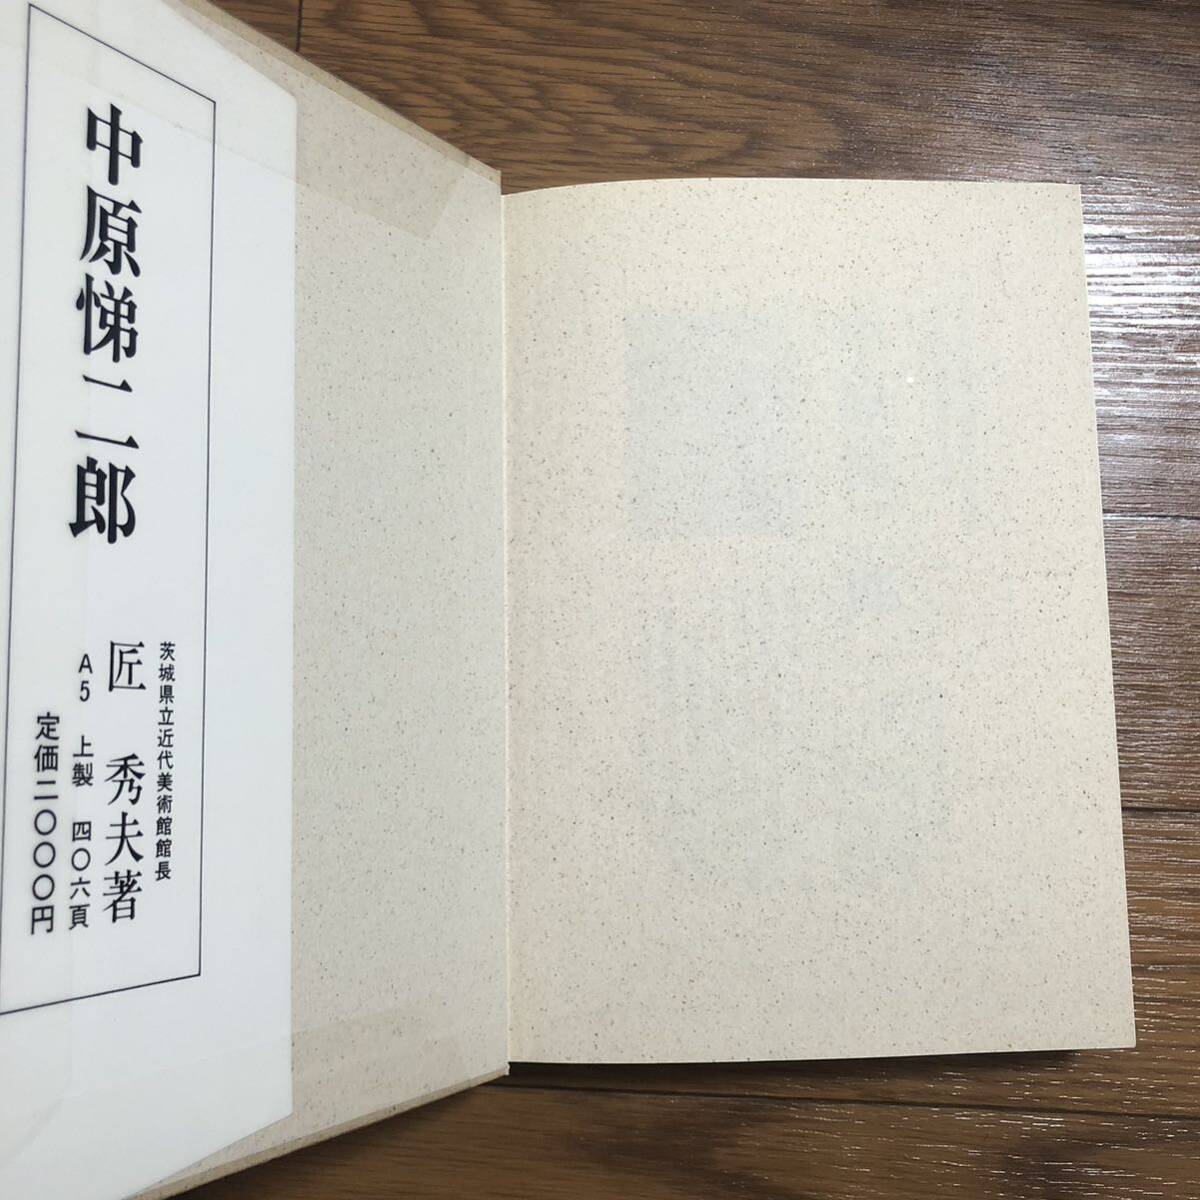 中原悌二郎
茨城県立近代美術館館長
匠 秀夫著
A5 上製 四〇六頁
定価二〇〇〇円